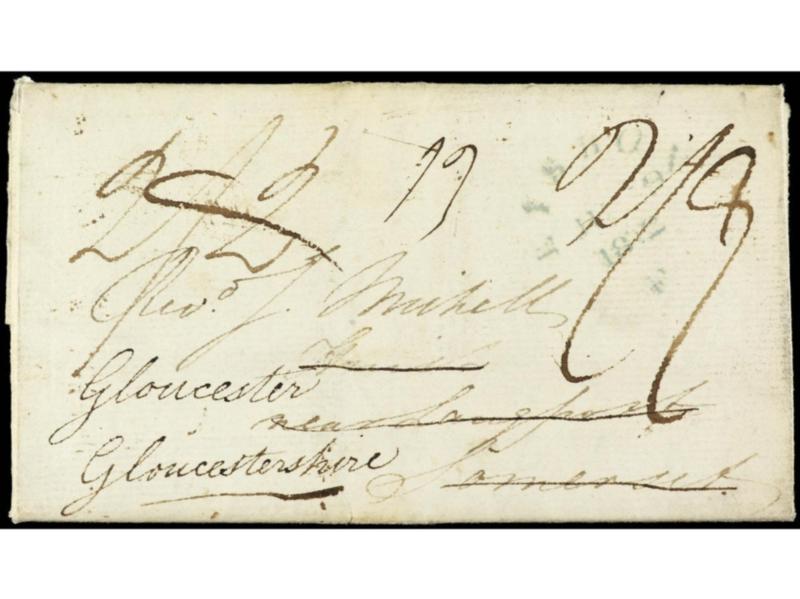 2/2 13 2/9
Revd. J. Michell
Gloucester
near Langport
Gloucestershire Somerset